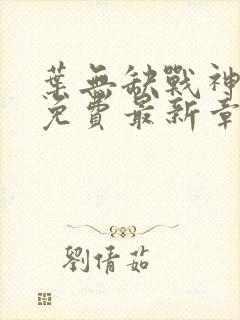 葉無缺戰神
免費最新章
劉倩茹